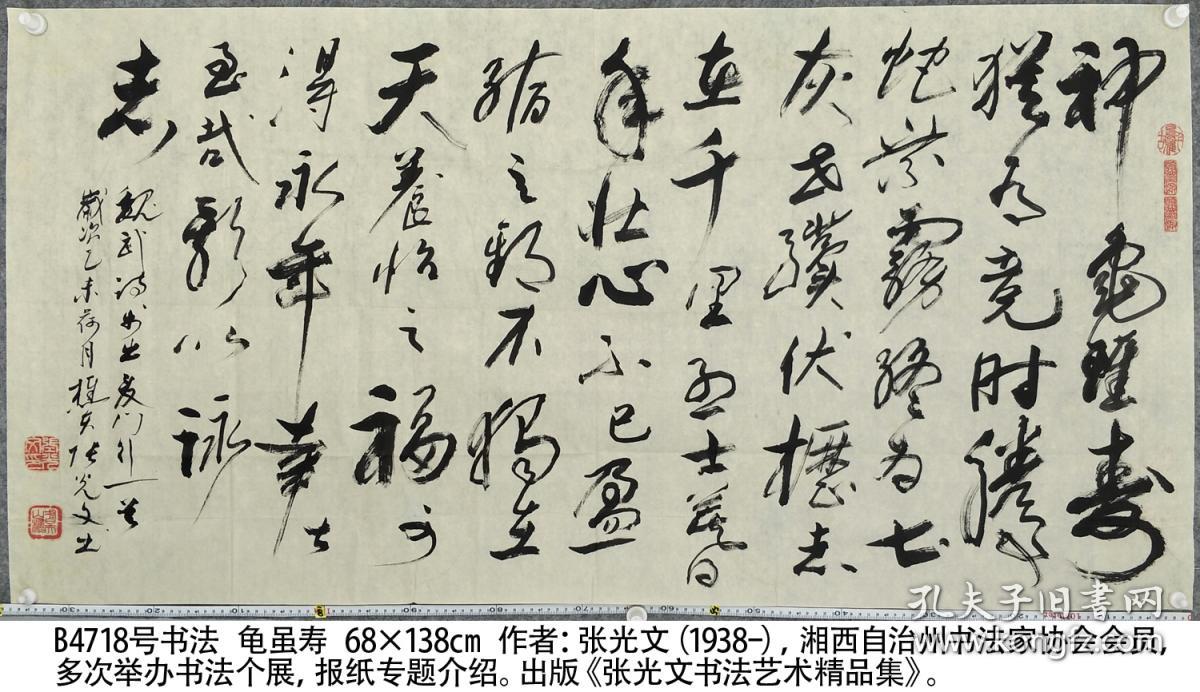 神龜雖壽
猶有竟时騰
蛇乘霧終为土
灰老驥伏櫪志
在千里烈士暮
年壯心不已盈
縮之期不獨在
天養怡之福可
得永年幸甚
至哉歌以詠
志
魏武诗步出夏门行一首
歲次乙未荷月樵夫張光文书
孔夫子旧书网
B4718号书法 龟虽寿 68×138cm 作者：张光文（1938-），湘西自治州书法家协会会员，
多次举办书法个展，报纸专题介绍。出版《张光文书法艺术精品集》。